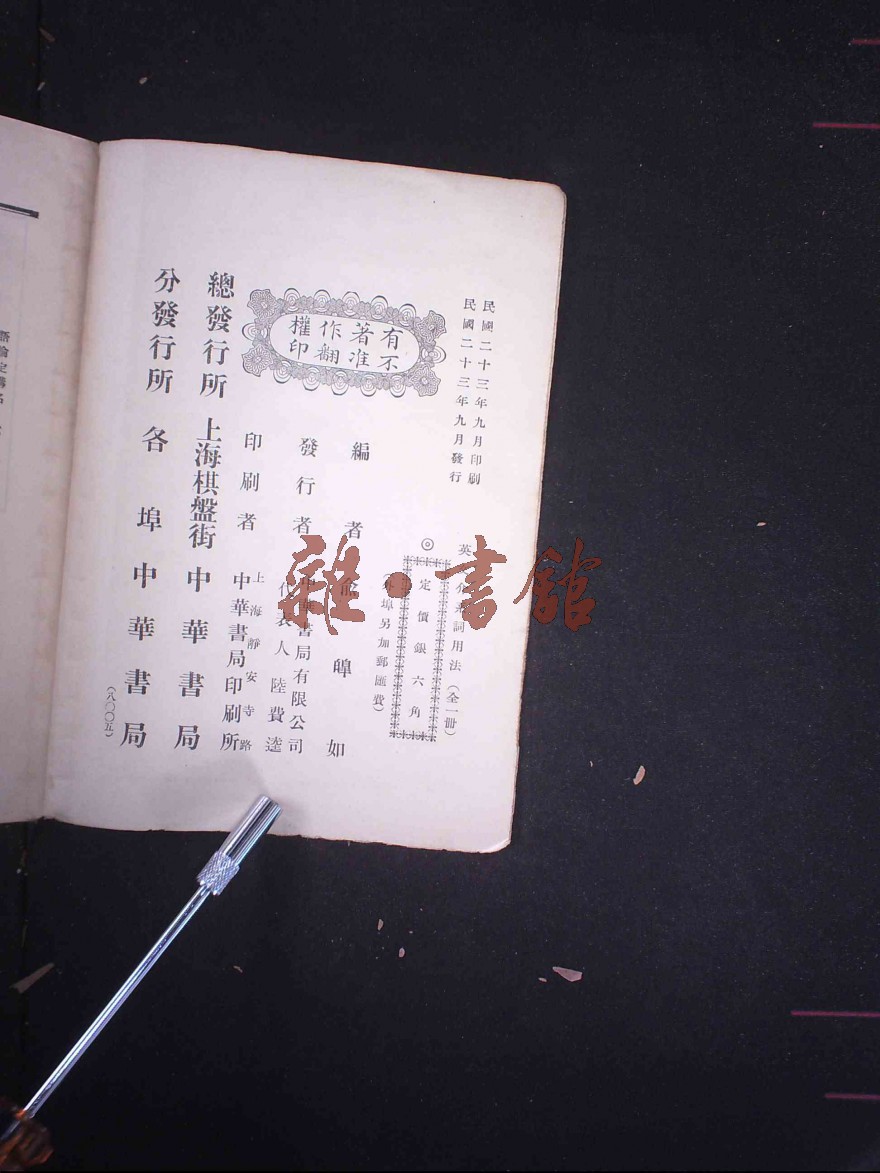 民國二十三年九月印刷
民國二十三年九月發行
有著作權
不准翻印
英
介系詞用法（全一冊）
◎
定價銀六角
外埠另加郵匯費）
編者
熊皞如
發行者
中華書局有限公司
代表人 陸費逵
印刷者
上海靜安寺路
中華書局印刷所
總發行所 上海棋盤街 中華書局
分發行所 各埠中華書局
（八〇〇五）
雜・書館